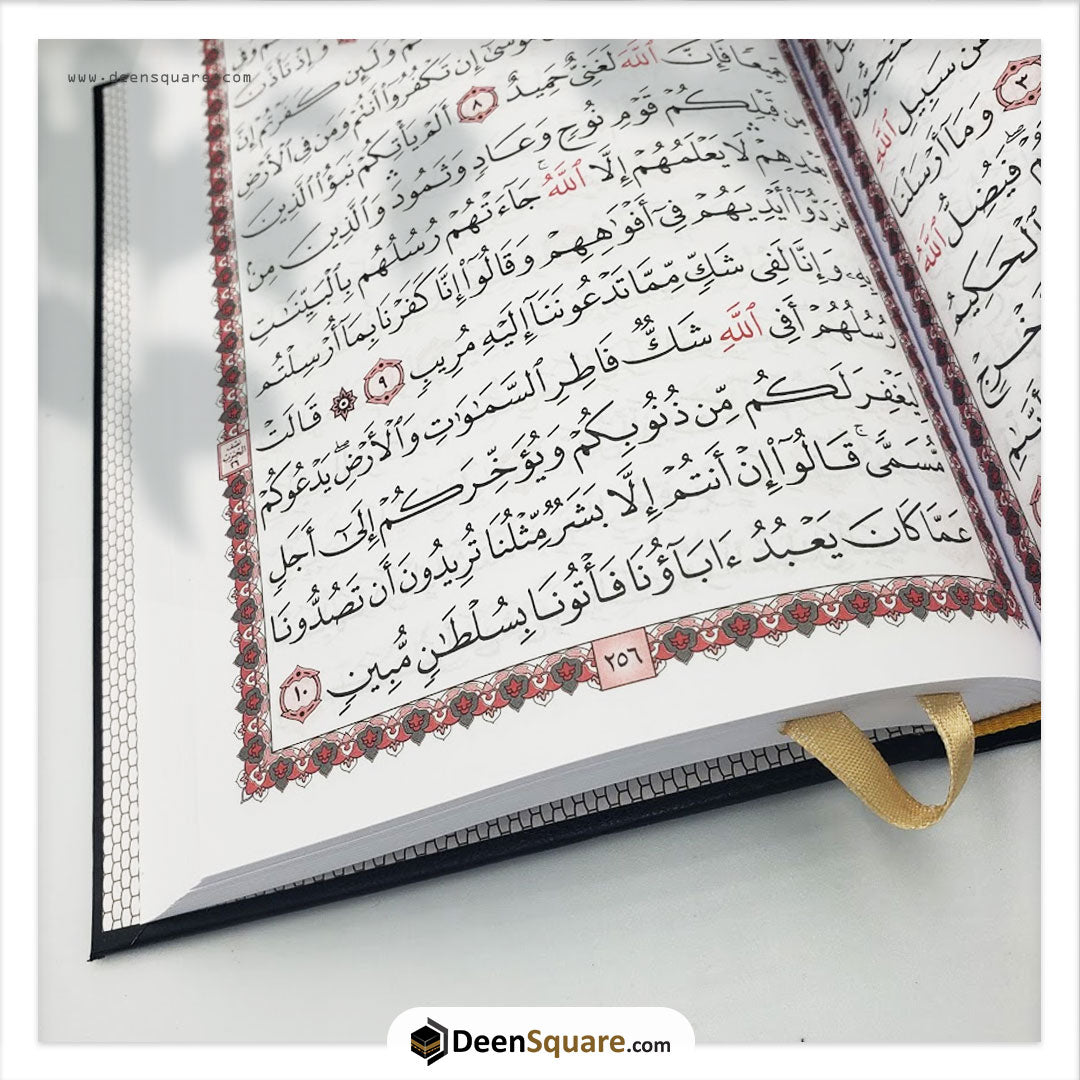 www.deensquare.com
عَن سَبِيلِ ٱللَّهِ
٣ وَمَآ أَرْسَلْنَا
فَيُضِلُّ ٱللَّهُ
ٱلْحَكِيمُ
وَإِذْ تَأَذَّنَ
وَلَئِن كَفَرْتُمْ إِنَّ
مُوسَىٰٓ إِن تَكْفُرُوٓا۟ أَنتُمْ وَمَن فِى ٱلْأَرْضِ
جَمِيعًا فَإِنَّ ٱللَّهَ لَغَنِىٌّ حَمِيدٌ ٨ أَلَمْ يَأْتِكُمْ نَبَؤُا۟ ٱلَّذِينَ
مِن قَبْلِكُمْ قَوْمِ نُوحٍ وَعَادٍ وَثَمُودَ وَٱلَّذِينَ مِنۢ
بَعْدِهِمْ لَا يَعْلَمُهُمْ إِلَّا ٱللَّهُ جَآءَتْهُمْ رُسُلُهُم بِٱلْبَيِّنَـٰتِ
فَرَدُّوٓا۟ أَيْدِيَهُمْ فِىٓ أَفْوَٰهِهِمْ وَقَالُوٓا۟ إِنَّا كَفَرْنَا بِمَآ أُرْسِلْتُم
بِهِۦ وَإِنَّا لَفِى شَكٍّ مِّمَّا تَدْعُونَنَآ إِلَيْهِ مُرِيبٍ ٩ قَالَتْ
رُسُلُهُمْ أَفِى ٱللَّهِ شَكٌّ فَاطِرِ ٱلسَّمَـٰوَٰتِ وَٱلْأَرْضِ يَدْعُوكُمْ
لِيَغْفِرَ لَكُم مِّن ذُنُوبِكُمْ وَيُؤَخِّرَكُمْ إِلَىٰٓ أَجَلٍ
مُّسَمًّى قَالُوٓا۟ إِنْ أَنتُمْ إِلَّا بَشَرٌ مِّثْلُنَا تُرِيدُونَ أَن تَصُدُّونَا
عَمَّا كَانَ يَعْبُدُ ءَابَآؤُنَا فَأْتُونَا بِسُلْطَـٰنٍ مُّبِينٍ ١٠
٢٥٦
DeenSquare.com